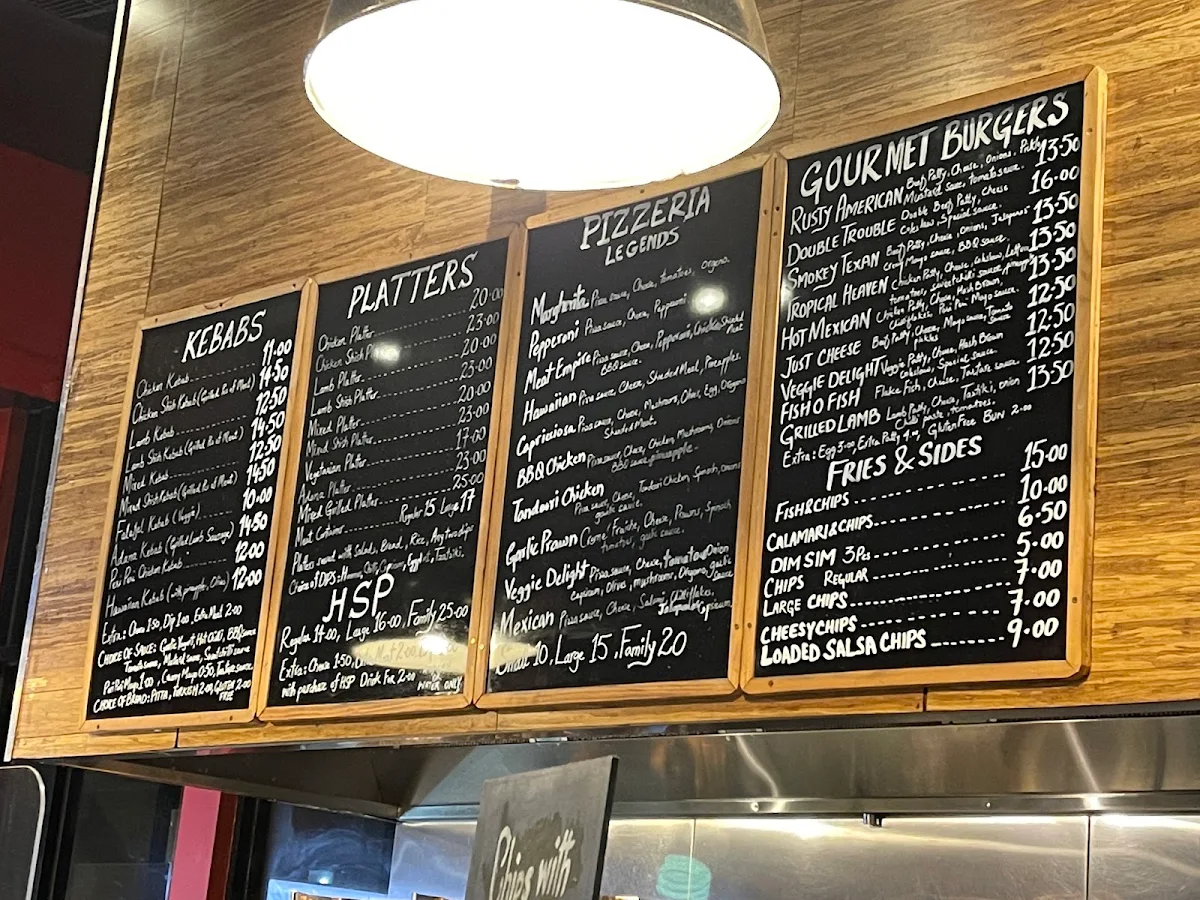 KEBABS
Chicken Kebab 11.00
Chicken Shish Kebab (Grilled Pcs of Meat) 14.50
Lamb Kebab 12.50
Lamb Shish Kebab (Grilled Pcs of Meat) 14.50
Mixed Kebab 12.50
Mixed Shish Kebab (Grilled Pcs of Meat) 14.50
Falafel Kebab (Veggie) 10.00
Adana Kebab (Grilled Lamb Sausage) 14.50
Peri Peri Chicken Kebab 12.00
Hawaiian Kebab (with pineapple, Olives) 12.00
Extra: Cheese 1.50, Dip 1.00, Extra Meat 2.00
CHOICE OF SAUCE: Garlic Yogurt, Hot Chilli, BBQ sauce
Tomato sauce, Mustard sauce, Sweet chilli sauce
Peri Peri Mayo 1.00, Creamy Mayo 0.50, Tartare sauce
CHOICE OF BREAD: PITTA, TURKISH 2.00, GLUTEN FREE 2.00
PLATTERS
Chicken Platter 20.00
Chicken Shish 23.00
Lamb Platter 20.00
Lamb Shish Platter 23.00
Mixed Platter 20.00
Mixed Shish Platter 23.00
Vegetarian Platter 17.00
Adana Platter 23.00
Mixed Grilled Platter 25.00
Meat Regular 15 Large 17
Platters served with Salad, Bread, Rice, Any two dips
Choice of DIPS: Hummus, Chilli, Eggplant, Tzatziki.
HSP
Regular 14.00, Large 16.00, Family 25.00
Extra: Cheese 1.50,
with purchase of HSP Drink For 2.00
WATER ONLY
PIZZERIA
LEGENDS
Margherita Pizza sauce, Cheese, tomatoes, oregano.
Pepperoni Pizza sauce, Cheese, Pepperoni
Meat Empire Pizza sauce, Cheese, Pepperoni, Chicken, Shaved Meat
BBQ sauce.
Hawaiian Pizza sauce, Cheese, Shaved Meat, Pineapples.
Capriciosa Pizza sauce, Cheese, Mushrooms, Olives, Egg, Oregano
Shaved Meat.
BBQ Chicken Pizza sauce, Cheese, Chicken, Mushrooms, Onions
BBQ sauce, pineapple.
Tandoori Chicken Pizza sauce, Cheese, Tandoori Chicken, Spinach, onions
garlic sauce.
Garlic Prawn Creme Fraiche, Cheese, Prawns, Spinach
tomatoes, garlic sauce.
Veggie Delight Pizza sauce, Cheese, tomatoes, Onion
capsicum, Olives, mushrooms, Oregano, garlic sauce
Mexican Pizza sauce, Cheese, Salami, Chilli flakes,
Jalapenos, Capsicum,
Small 10, Large 15, Family 20
GOURMET BURGERS
RUSTY AMERICAN Beef Patty, Cheese, Onions, Pickles 13.50
Mustard sauce, tomato sauce.
DOUBLE TROUBLE Double Beef Patty, Cheese 16.00
Coleslaw, Special sauce.
SMOKEY TEXAN Beef Patty, Cheese, onions, Jalapenos 13.50
Creamy Mayo sauce, BBQ sauce.
TROPICAL HEAVEN Chicken Patty, Cheese, Coleslaw, Lettuce 13.50
tomatoes, sweet chilli sauce, pineapple
HOT MEXICAN Chicken Patty, Cheese, Hash Brown, 13.50
Chilli flakes, Peri Peri Mayo sauce.
JUST CHEESE Beef Patty, Cheese, Mayo sauce, Tomato Sauce 12.50
pickles
VEGGIE DELIGHT Veggie Patty, Cheese, Hash Brown 12.50
Coleslaw, Special sauce
FISH O FISH Flake Fish, Cheese, Tartare sauce 12.50
GRILLED LAMB Lamb Patty, Cheese, Tzatziki, onion 13.50
Chilli paste, tomatoes.
Extra: Egg 3.00, Extra Patty 4.00, Gluten Free BUN 2.00
FRIES & SIDES
FISH & CHIPS 15.00
CALAMARI & CHIPS 10.00
DIM SIM 3Pcs 6.50
CHIPS REGULAR 5.00
LARGE CHIPS 7.00
CHEESY CHIPS 7.00
LOADED SALSA CHIPS 9.00
Chips with